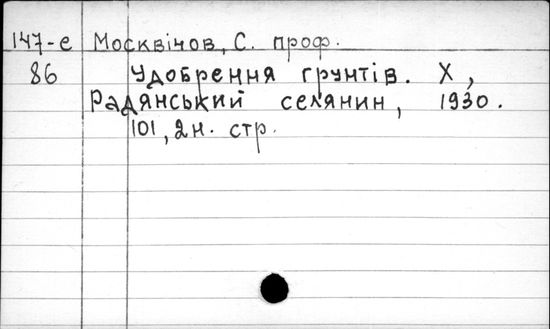 147-е Москвічов, С. проф.
86 Удобрення ґрунтів. Х,
Радянський селянин, 1930.
101, 2н. стр.